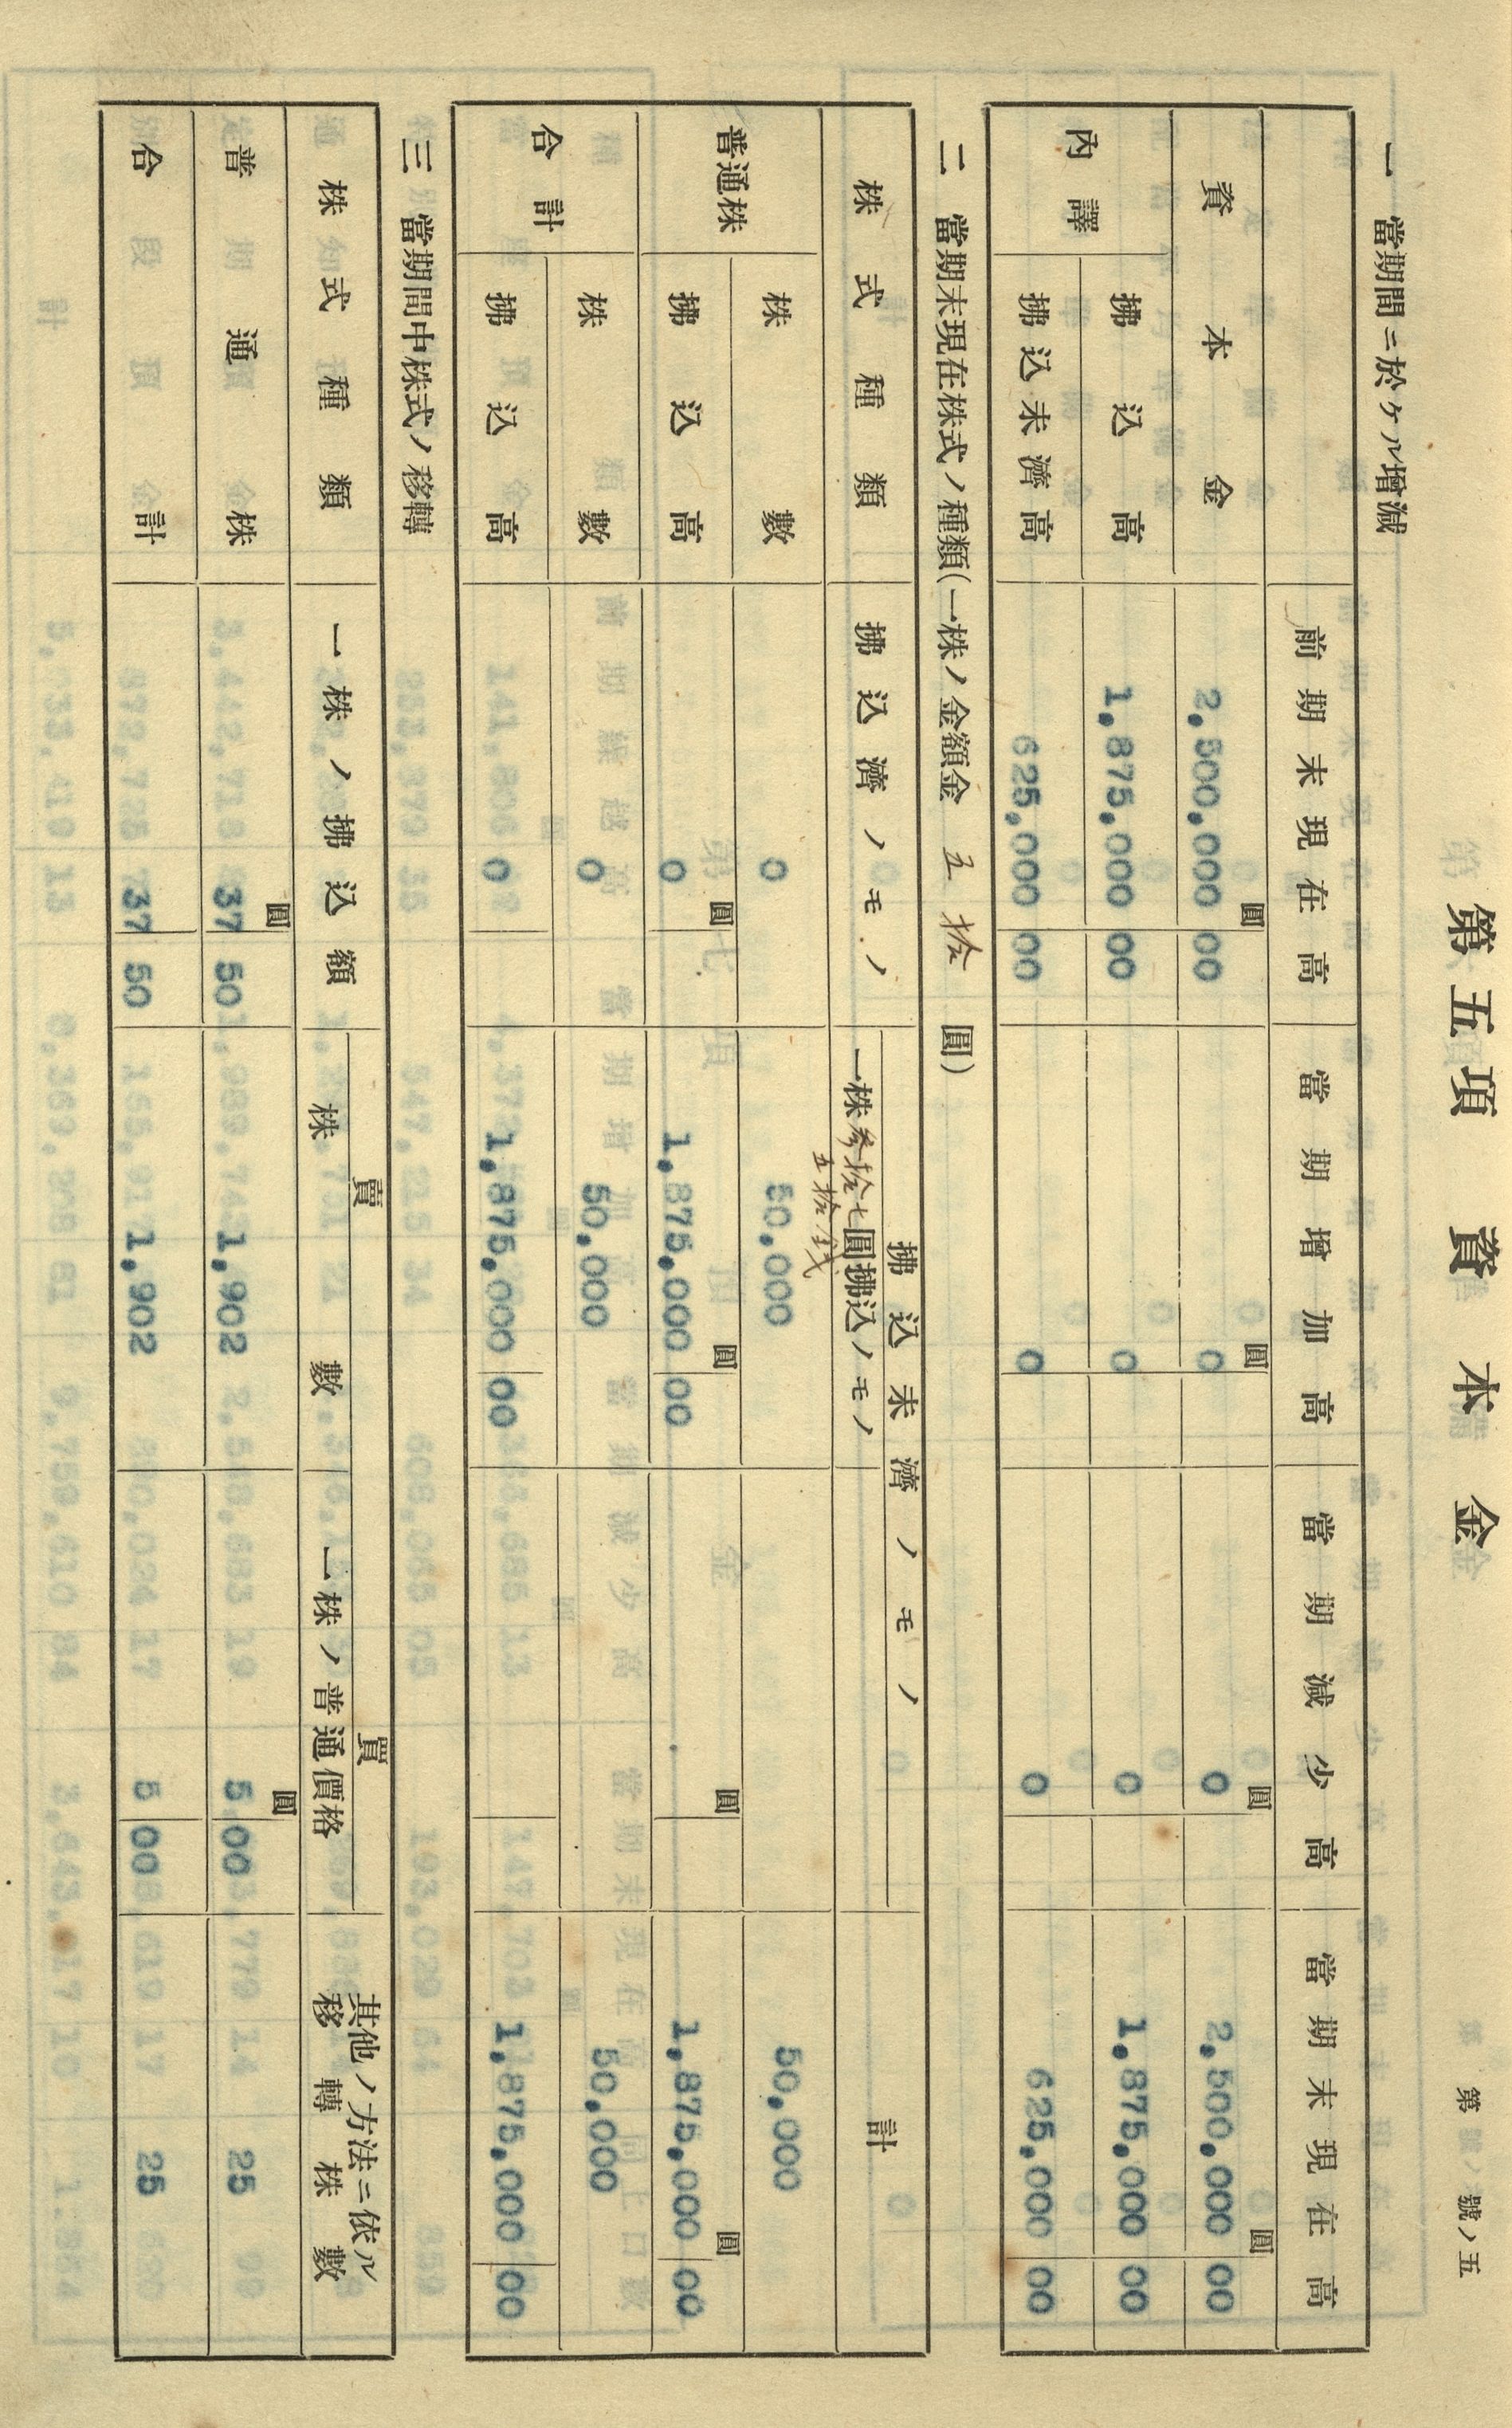 第五項 資本金
第 號ノ五
一 當期間ニ於ケル增減
前期末現在高 當期增加高 當期減少高 當期末現在高
圓 圓 圓 圓
資本金 2,500,000 00 0 0 2,500,000 00
內譯 拂込高 1,875,000 00 0 0 1,875,000 00
拂込未濟高 625,000 00 0 0 625,000 00
二 當期末現在株式ノ種類(一株ノ金額金 五拾 圓)
株式種類 拂込濟ノモノ 拂込未濟ノモノ 計
一株參拾七圓拂込ノモノ
五拾錢
普通株 株數 0 50,000 50,000
圓 圓 圓 圓
拂込高 0 1,875,000 00 1,875,000 00
合計 株數 0 50,000 50,000
拂込高 0 1,875,000 00 1,875,000 00
三 當期間中株式ノ移轉
株式種類 一株ノ拂込額 賣買 其他ノ方法ニ依ル
移轉株數
株數 一株ノ普通價格
圓 圓
普通株 37 50 1,902 5 00 25
合計 37 50 1,902 5 00 25